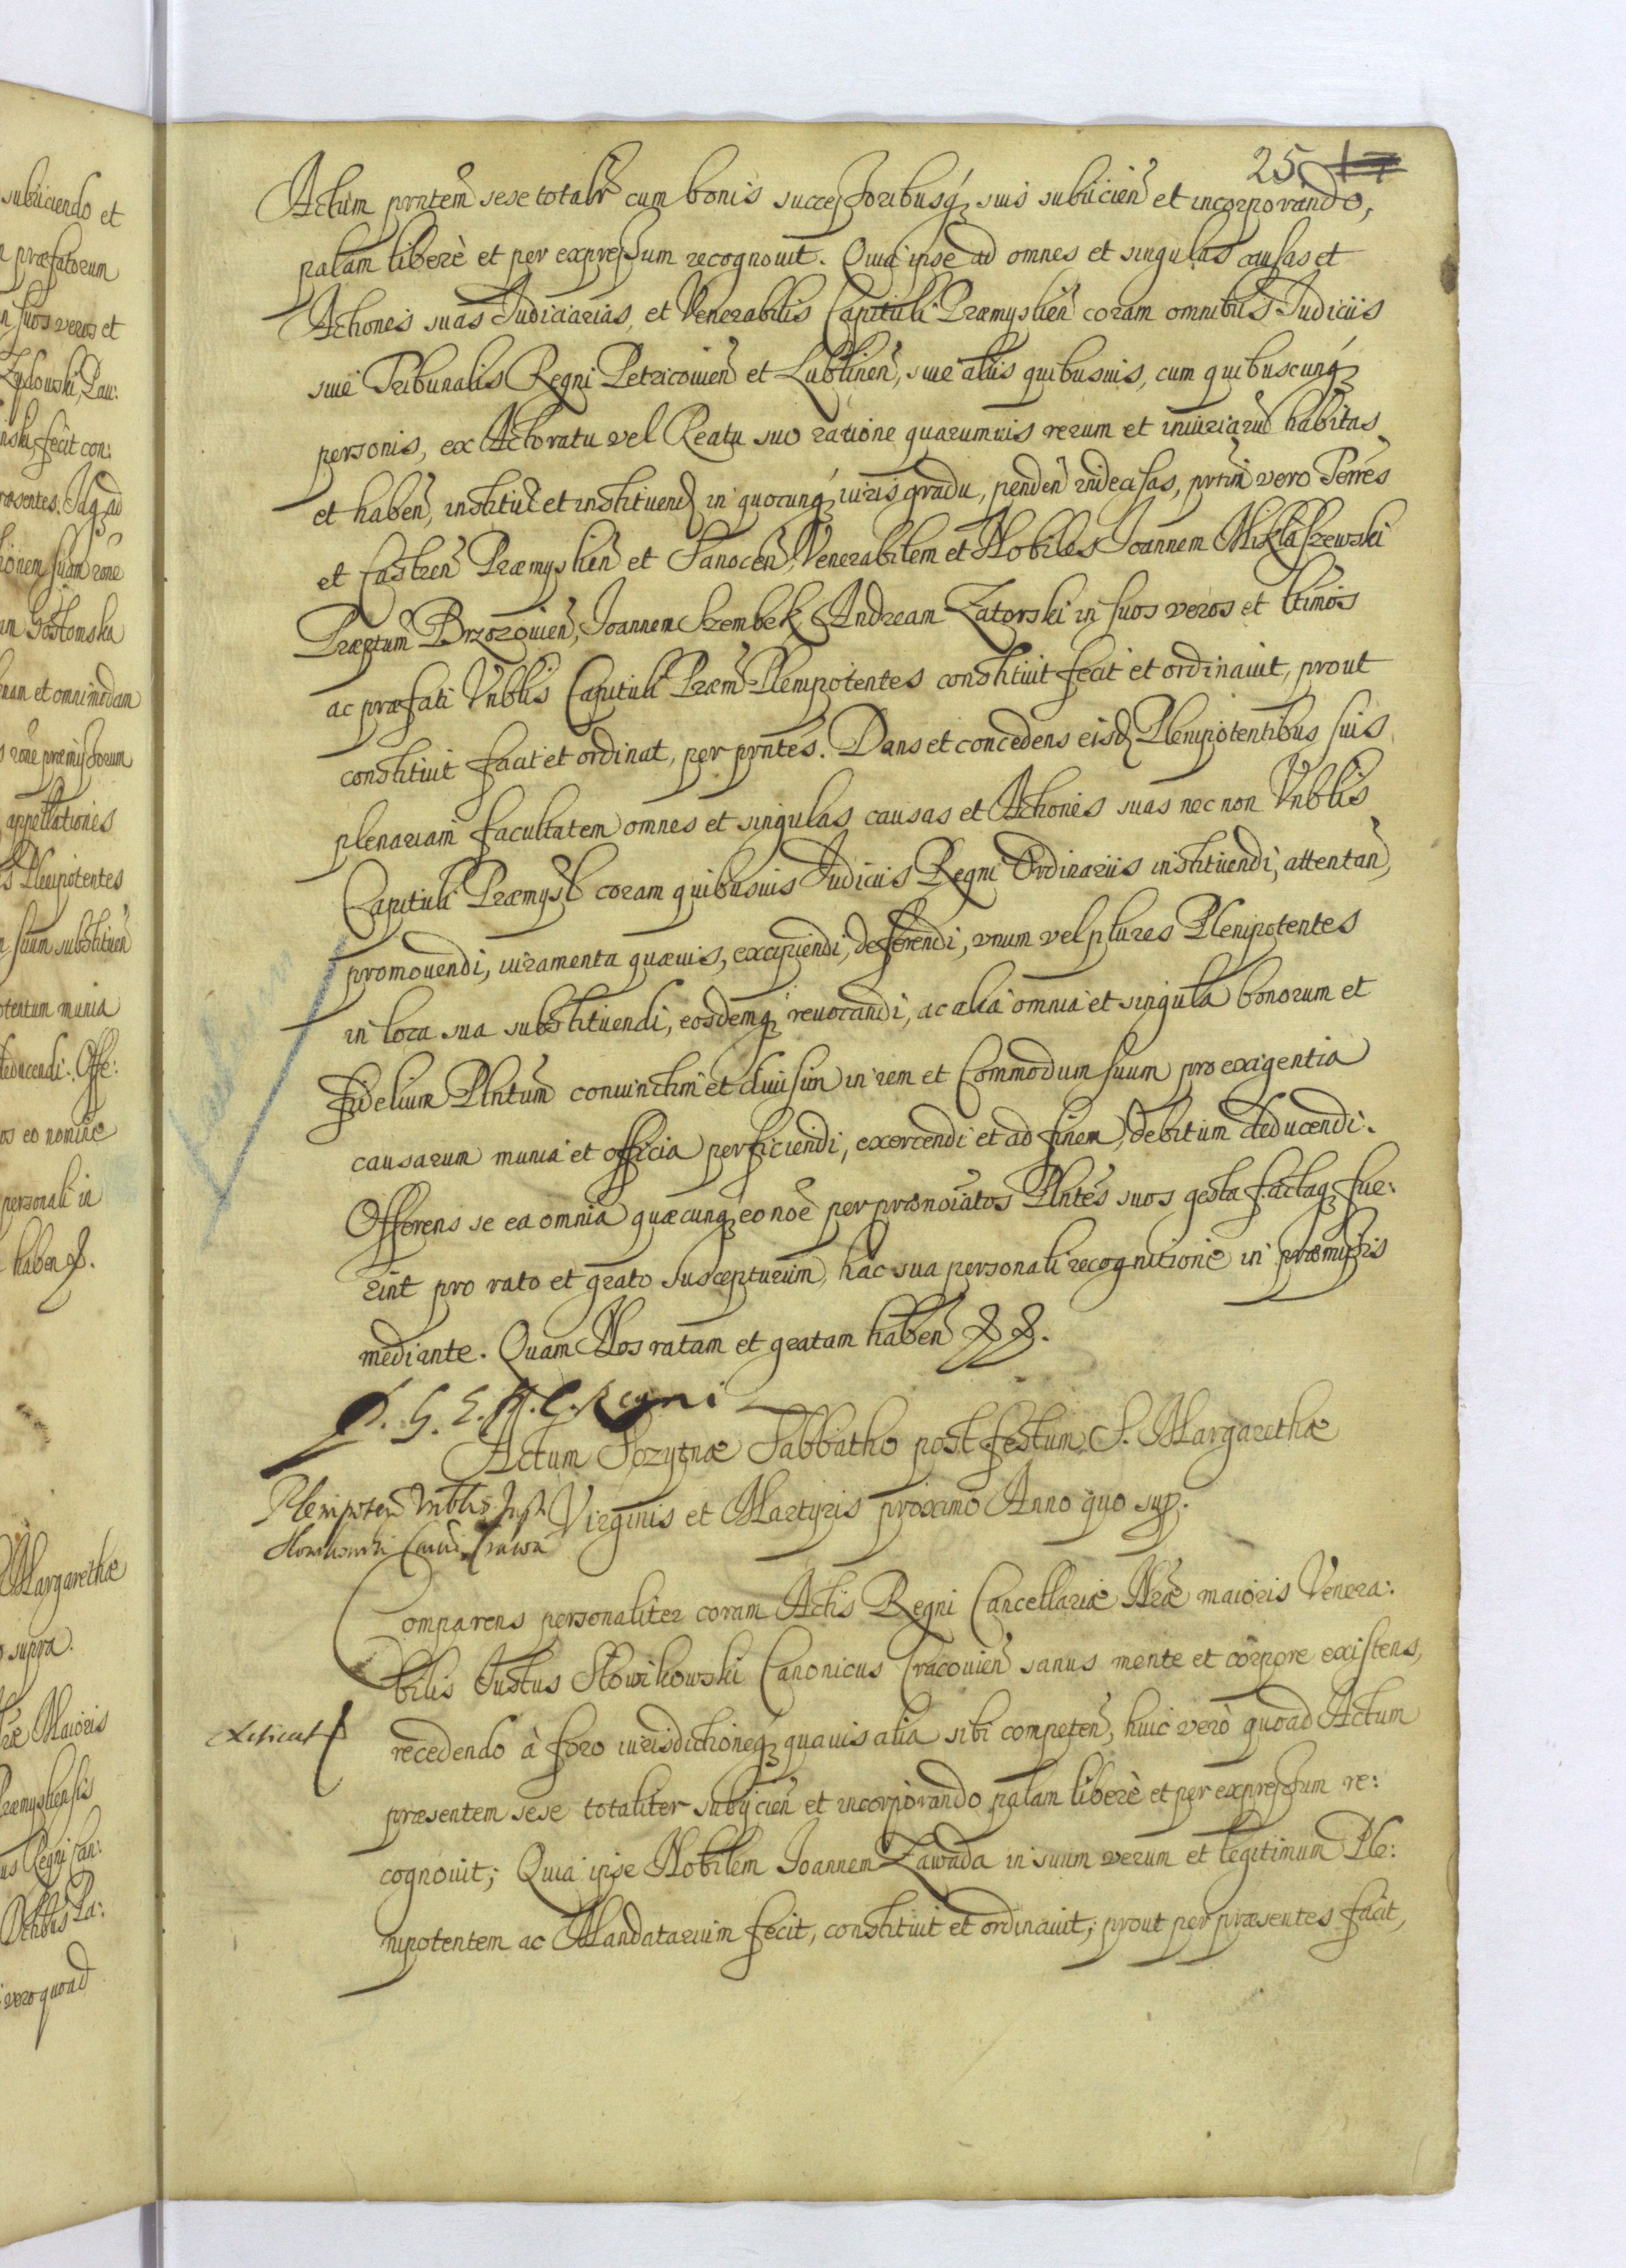 25
Actum pñntem sese totalr̃ cum bonis successoribusq; suis subiicien̄ et incorporando,
palam liberè et per expressum recognouit. Quia ipse ad omnes et singulas causas et
Actiones suas Judiciarias, et Venerabilis Capituli Præmyslien̄ coram omnibus Judiciis
siue Tribunalis Regni Petricouien̄ et Lublinen̄, siue aliis quibusuis, cum quibuscunq;
personis, ex Actoratu vel Reatu suo ratione quarumuis rerum et iniuriarū habitas
et haben̄, institut̄ et instituend̄ in quocunq; iuris gradu, penden̄ indecisas, pr̃tim vero Terr̃es
et Castren̄ Præmyslien̄ et Sanocen̄, Venerabilem et Nobiles Joannem Miklaszewski
Præptum Brzozouien̄, Joannem Szembek, Andream Zatorski in suos veros et ltimos
ac præfati Vnblis Capituli Præm̄ Plenipotentes constituit fecit et ordinauit, prout
constituit facit et ordinat, per pñntes. Dans et concedens eisd̄ Plenipotentibus suis
plenariam facultatem omnes et singulas causas et Actiones suas nec non Vnblis
Capituli Præmysl coram quibusuis Judiciis Regni Ordinariis instituendi, attentan̄,
promouendi, iuramenta quæuis, excipiendi, deferendi, vnum vel plures Plenipotentes
in loca sua substituendi, eosdemq; reuocandi, ac alia omnia et singula bonorum et
fidelium Plñtum coniunctim et diuisim in rem et Commodum suum pro exigentia
causarum munia et officia perficiendi, exercendi et ad finem debitum deducendi.
Offerens se ea omnia quæcunq; eo noẽ per prænoĩatos Plñtes suos gesta factaq; fue:
rint pro rato et grato suscepturum, hac sua personali recognitione in præmissis
mediante. Quam Nos ratam et gratam haben̄ &&.
P. G. E. R. C. Regni
Actum Sozytnæ Sabbatho post festum S. Margarethæ
Virginis et Martyris proximo Anno quo sup.
Plenipoten̄ Vnblis Justi
Slowikowski Canci Cracou
Comparens personaliter coram Actis Regni Cancellariæ Nræ maioris Venera:
bilis Justus Słowikowski Canonicus Cracouien̄ sanus mente et corpore existens,
recedendo à foro iurisdictioneq; quauis alia sibi competen̄, huic verò quoad Actum
præsentem sese totaliter subijcien̄ et incorporando palam liberè et per expressum re:
cognouit; Quia ipse Nobilem Joannem Zawada in suum verum et legitimum Ple:
nipotentem ac Mandatarium fecit, constituit et ordinauit; prout per præsentes facit,